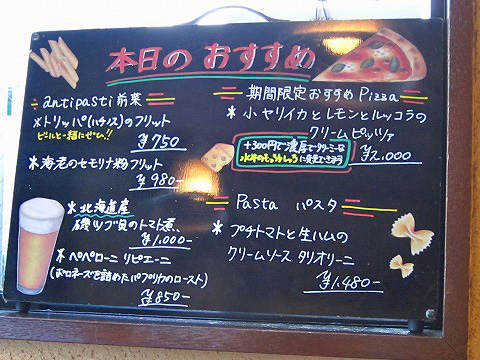 本日の おすすめ
antipasti 前菜
*トリッパ(ハチノス)のフリット
ビールと一緒にぜひ!!
¥750
*海老のセモリナ粉フリット
¥980-
*北海道産
磯ツブ貝のトマト煮、
¥1,000-
*ペペローニ リピエーニ
(ボロネーズを詰めたパプリカのロースト)
¥850-
期間限定おすすめ Pizza
*小ヤリイカとレモンとルッコラの
クリームピッツァ
¥2,000
+300円で濃厚でクリーミーな
水牛のもっつぁれらに変更できます
Pasta パスタ
*プチトマトと生ハムの
クリームソース タリオリーニ
¥1,480-